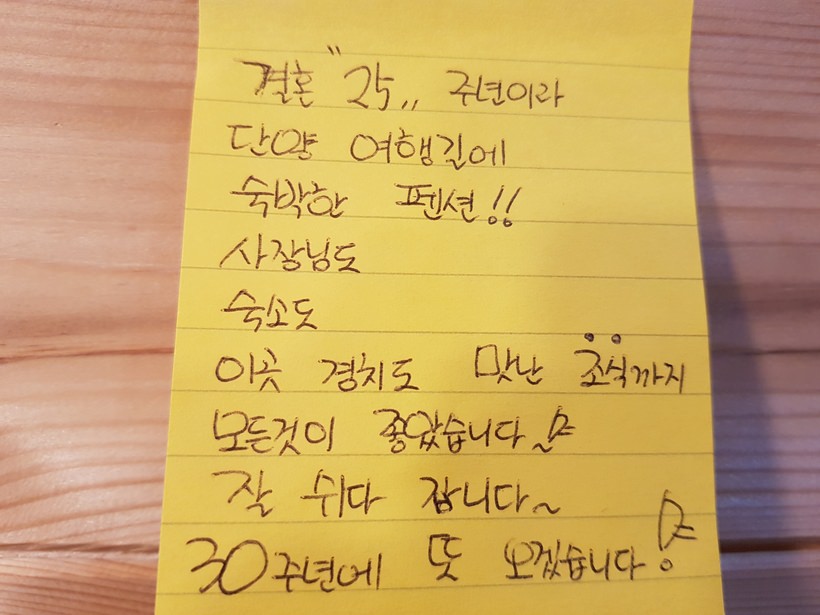 결혼 "25,, 주년이라
단양 여행길에
숙박한 펜션!!
사장님도
숙소도
이곳 경치도 맛난 조식까지
모든것이 좋았습니다
잘 쉬다 갑니다~
30주년에 뜻 오겠습니다!